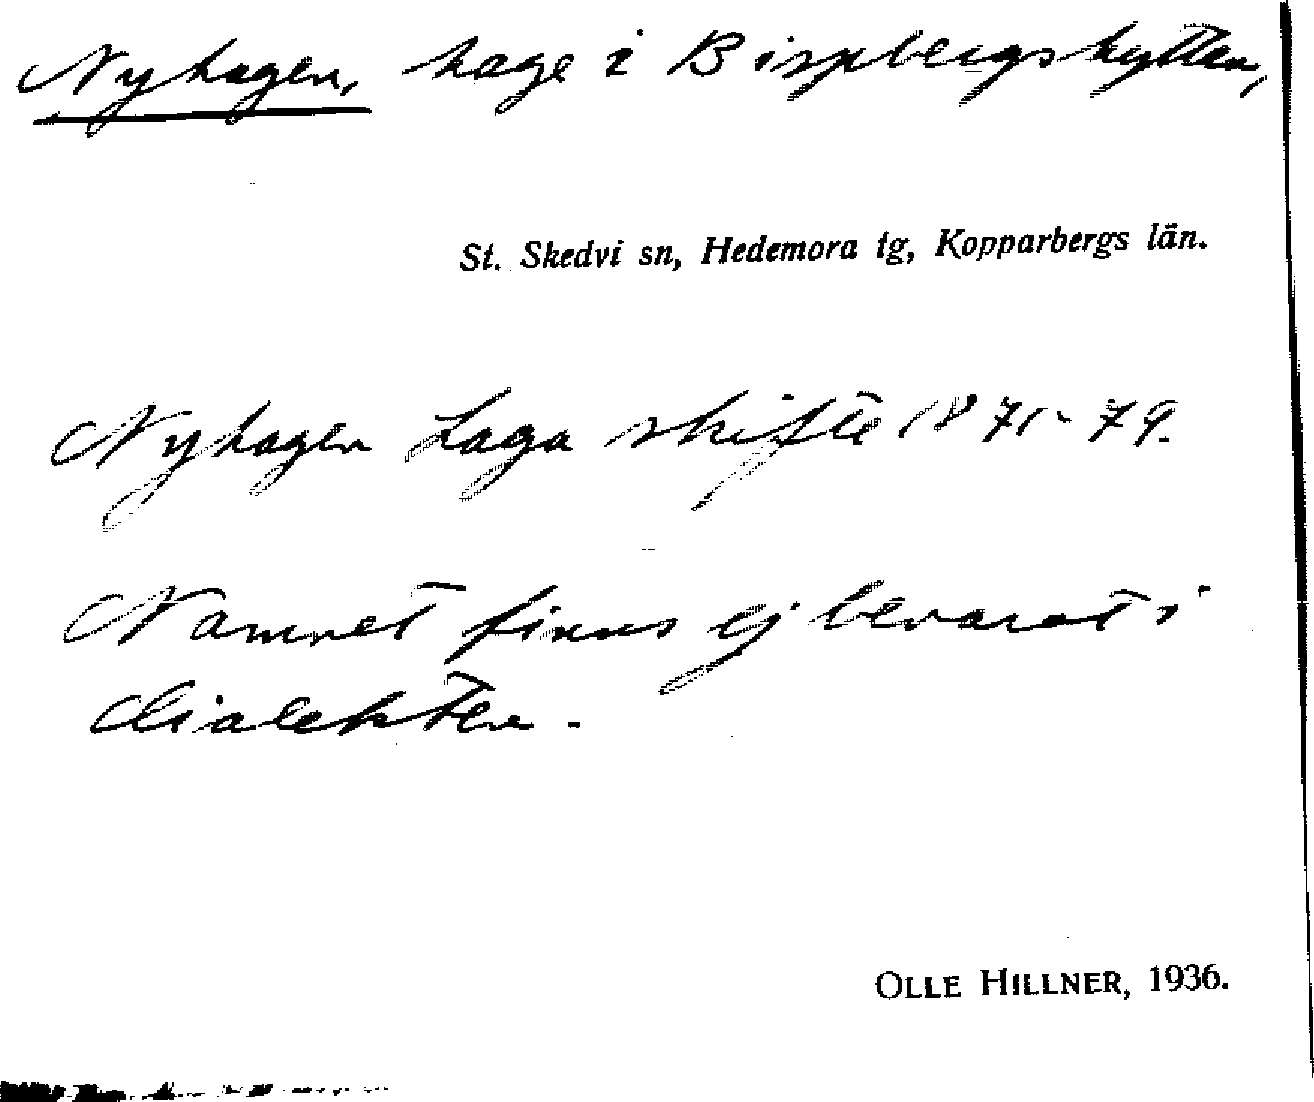 Nyhagen, hage i Bispbergshyttan,
St. Skedvi sn, Hedemora tg, Kopparbergs län.
Nyhagen Laga skifte 1871-79.
Namnet finns ej bevarat i
dialekten.
OLLE HILLNER, 1936.